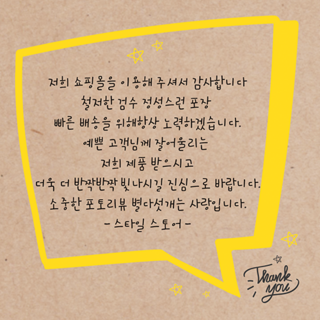 저희 쇼핑몰을 이용해 주셔서 감사합니다
철저한 검수 정성스런 포장
빠른 배송을 위해항상 노력하겠습니다.
예쁜 고객님께 잘어울리는
저희 제품 받으시고
더욱 더 반짝반짝 빛나시길 진심으로 바랍니다.
소중한 포토리뷰 별다섯개는 사랑입니다.
- 스타일 스토어 -
Thank
you